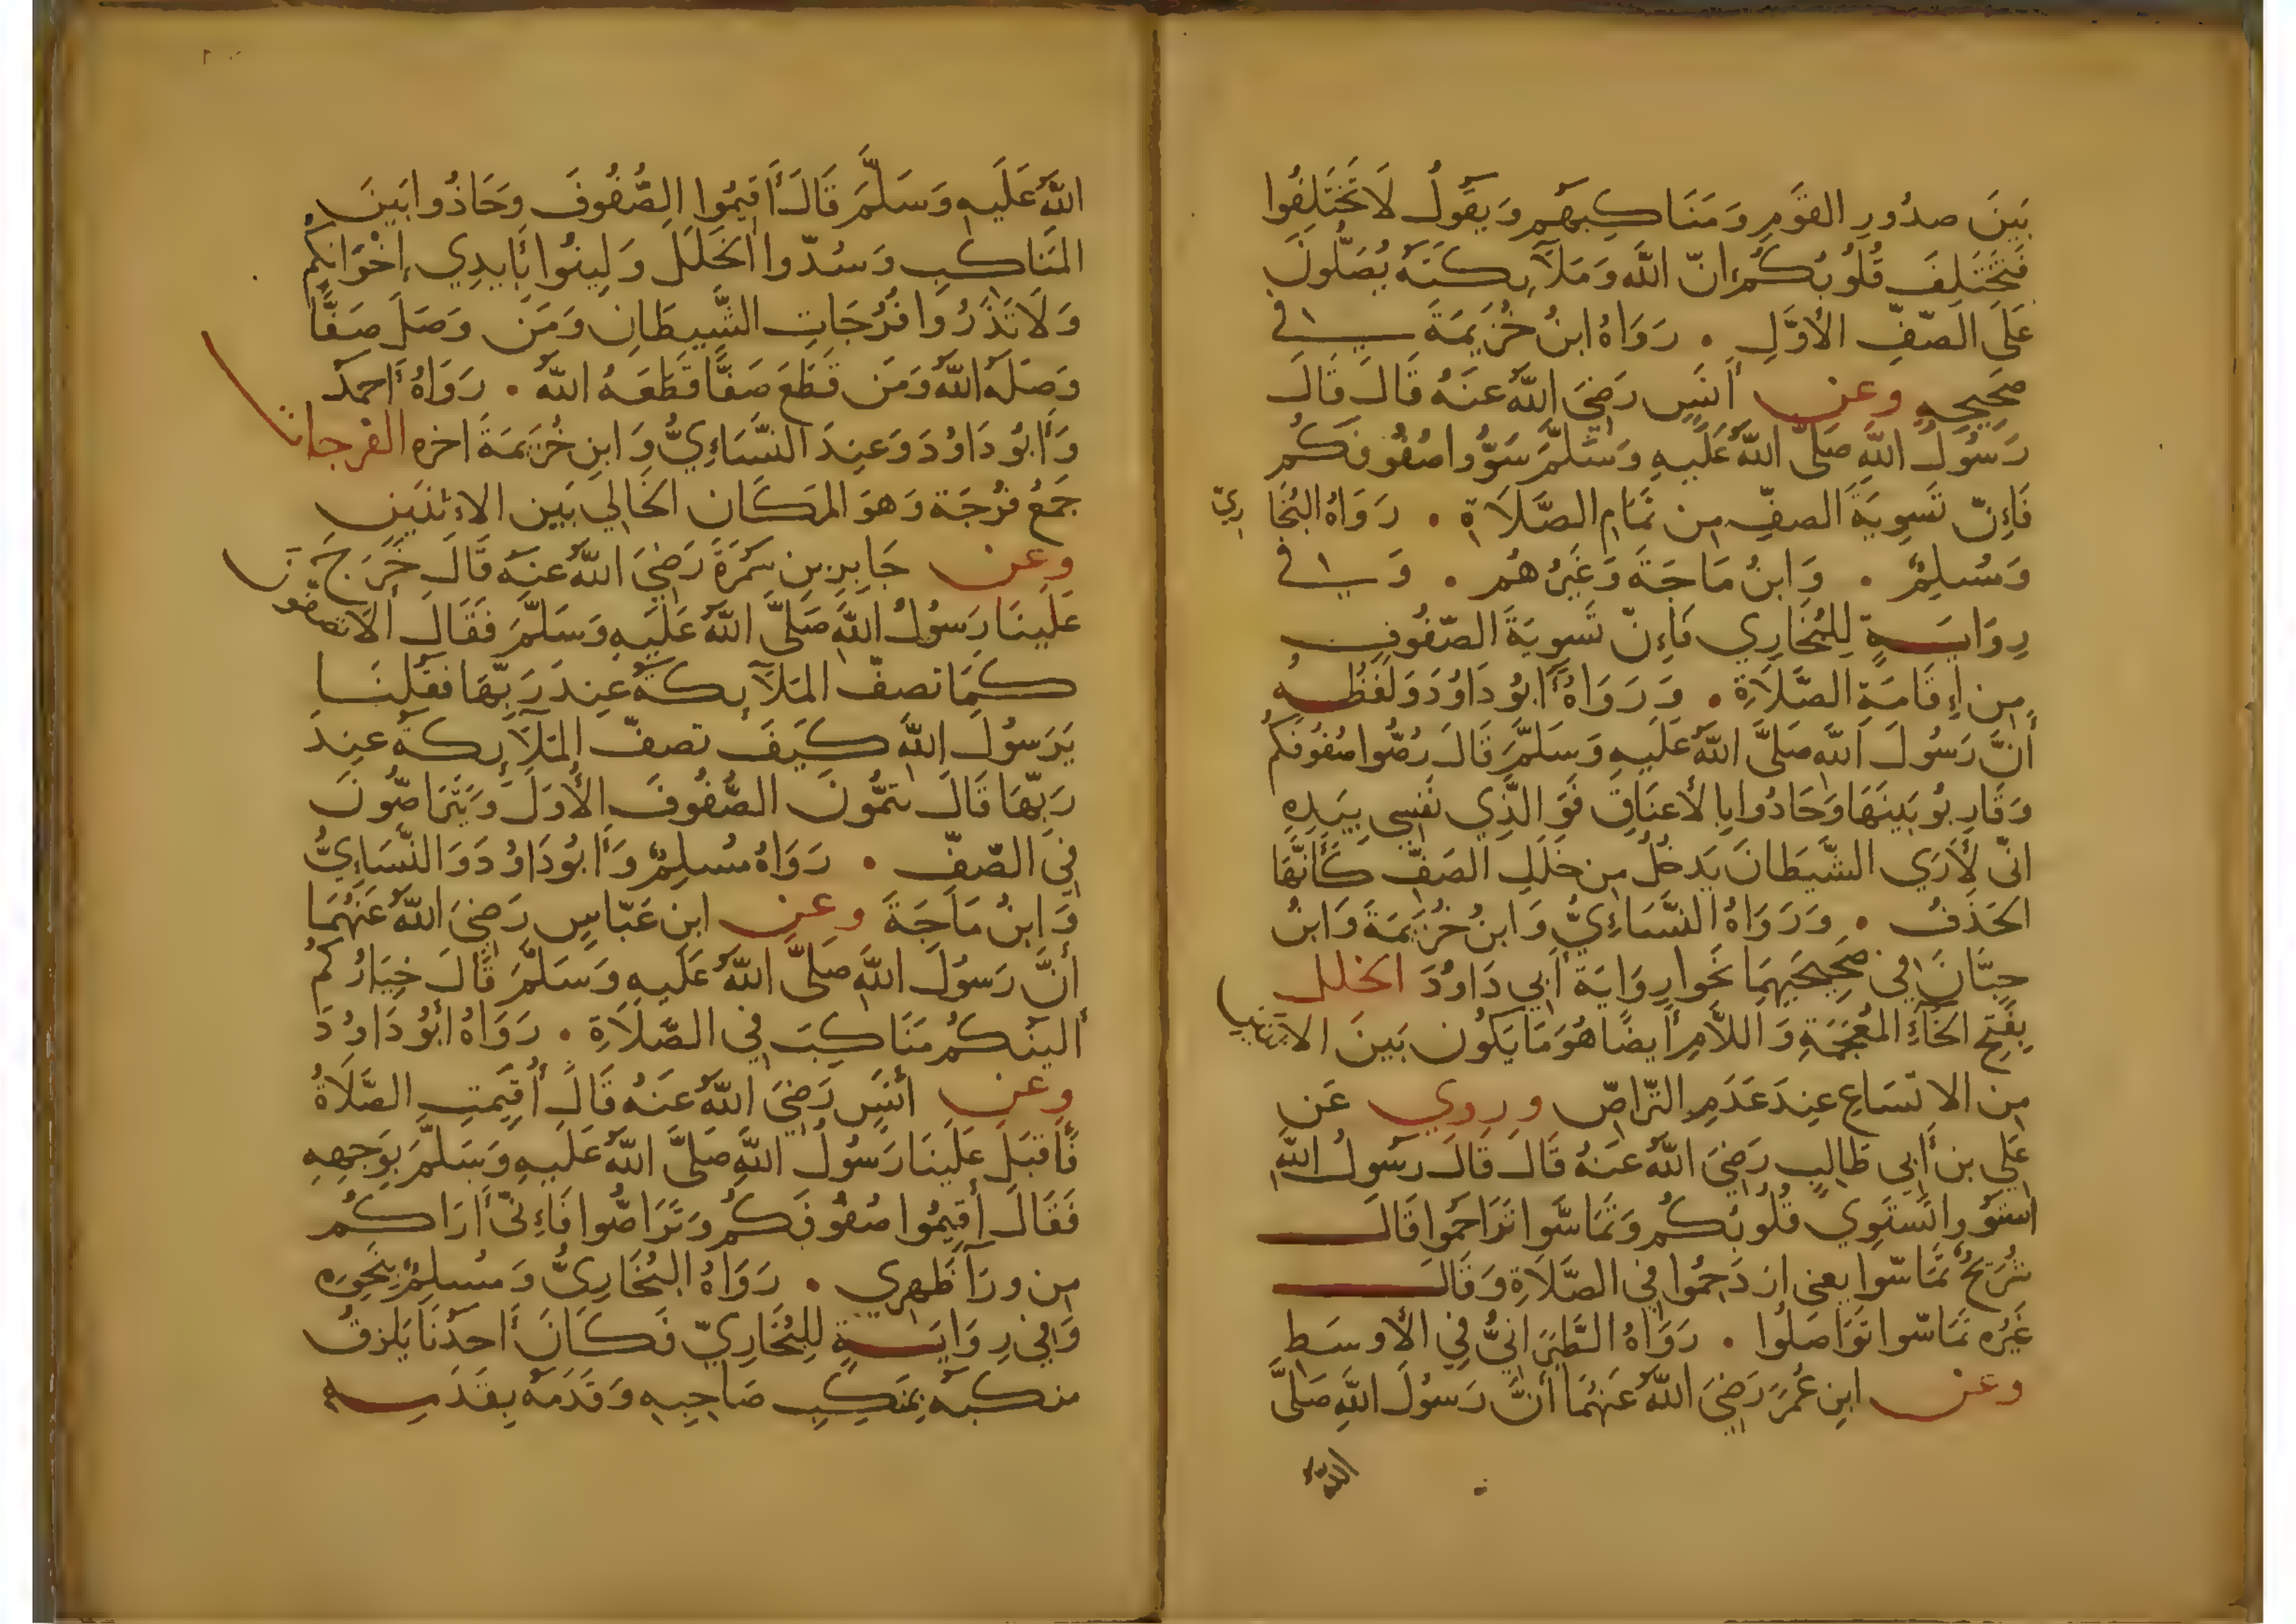 بَينَ صدُورِ القَومِ وَمَنَاكِبِهُم وَيَقُولُ لَا تَختَلِفُوا
فَتَختَلِفَ قُلُوبُكُم إنّ اللَّهَ وَمَلَآئِكَتَهُ يُصَلُّونَ
عَلَى الصّفِّ الأوَّلِ . رَوَاهُ ابنُ خُزَيمَةَ في
صَحِيحِهِ وعن أنَسٍ رَضِيَ اللَّهُ عَنهُ قَالَ قَالَ
رَسُولُ اللَّهِ صَلَّى اللَّهُ عَلَيهِ وَسَلَّمَ سَوُّوا صُفُوفَكُم
فَإنّ تَسوِيَةَ الصفِّ مِن تَمَامِ الصَّلَاةِ . رَوَاهُ البُخَارِيّ
وَمُسلِمٌ . وَابنُ مَاجَةَ وَغَيرُهُم . وَفي
رِوَايَةٍ لِلبُخَارِي فَإنّ تَسوِيَةَ الصّفُوفِ
مِن إقَامَةِ الصَّلَاةِ . وَرَوَاهُ أَبُو دَاوُدَ وَلَفظُهُ
أنَّ رَسُولَ اللَّهِ صَلَّى اللَّهُ عَلَيهِ وَسَلَّمَ قَالَ رُصُّوا صُفُوفَكُم
وَقَارِبُو بَينَهَا وَحَاذُوا بِالأعنَاقِ فَوَ الَّذِي نَفسِي بِيَدِهِ
انّى لَأَرَي الشَّيطَانَ يَدخُلُ مِن خَلَلِ الصَفِّ كَأَنَّهَا
الحَذَفُ . وَرَوَاهُ النَّسَاءِيُّ وَابنُ خُزَيمَةَ وَابنُ
حِبَّانَ في صَحِيحَيهِمَا نَحوَا رِوَايَةَ أبي دَاوُدَ الخلل
بِفَتحِ الخَآءِ المُعجَمَةِ وَاللَّامِ أَيضًا هُوَ مَا يَكُون بَينَ الاثنَينِ
مِن الاتّسَاعِ عِندَ عَدَمِ التّراصّ وروي عَن
عَلِي بن أبي طَالِبٍ رَضِيَ اللَّهُ عَنهُ قَالَ قَالَ رَسُولُ اللَّهِ
استَوُوا تَستَوِي قُلُوبُكُم وَتَمَاسُّوا تَرَاحَمُوا قَالَ
سُرَيحٌ تَمَاسّوا يعني ازدَحِمُوا فِي الصَّلَاةِ وَقَالَ
غَيرُه تَمَاسّوا تَوَاصَلُوا . رَوَاهُ الطَّبَرَانيُّ فِي الأَوسَطِ
وعن ابنِ عُمَرَ رَضِيَ اللَّهُ عَنهُمَا أنَّ رَسُولَ اللَّهِ صَلَّى
اللّه
اللَّهُ عَلَيهِ وَسَلَّمَ قَالَ أَقِيمُوا الصُّفُوفَ وَحَاذُوا بَينَ
المَنَاكِبِ وَسُدّوا الخَلَلَ وَلِينُوا بِأَيدِي إخْوَانِكُم
وَلَا تَذَرُوا فُرُجَاتِ الشَّيطَانِ وَمَن وَصَلَ صَفًّا
وَصَلَهُ اللَّهُ وَمَن قَطَعَ صَفًّا قَطَعَهُ اللَّهُ . رَوَاهُ أَحمَدُ
وَأَبُو دَاوُدَ وَعِندَ النَّسَاءِيُّ وَابنِ خُزَيمَةَ اخره الفرجات
جَمعُ فُرْجَة وَهوَ المَكَان الخَالِي بَين الاءثنَينِ
وعن جَابِرِ بنِ سَمُرَةَ رَضِيَ اللَّهُ عَنهُ قَالَ خَرَجَ
عَلَينَا رَسُولُ اللَّهِ صَلَّى اللَّهُ عَلَيهِ وَسَلَّمَ فَقَالَ ألَا تصفّون
كَمَا تصفّ المَلَآئِكَةُ عِندَ رَبِّهَا فَقُلنَا
يَرَسُولَ اللَّهِ كَيفَ تصفّ المَلَآئِكَةُ عِندَ
رَبِّهَا قَالَ يتمُّونَ الصُّفُوفَ الأُوَلَ وَيَتَرَاصُّونَ
فِي الصّفِّ . رَوَاهُ مُسلِمٌ وَأَبُو دَاوُدَ وَالنَّسَاءِيُّ
وَابنُ مَاجَةَ وعن ابن عَبّاسٍ رَضِيَ اللَّهُ عَنهُمَا
أنَّ رَسُولَ اللَّهِ صَلَّى اللَّهُ عَلَيهِ وَسَلَّمَ قَالَ خِيَارُكُم
ألينُكُم مَنَاكِبَ فِي الصَّلَاةِ . رَوَاهُ أَبُو دَاوُدَ
وعن أنَسٍ رَضِيَ اللَّهُ عَنهُ قَالَ أُقِيمَتِ الصَّلَاةُ
فَأَقبَلَ عَلَينَا رَسُولُ اللَّهِ صَلَّى اللَّهُ عَلَيهِ وَسَلَّمَ بِوَجهِهِ
فَقَالَ أَقِيمُوا صُفُوفَكُم وَتَرَاصُّوا فَإنّي أَرَاكُم
مِن ورَآ ظَهرِي . رَوَاهُ البُخَارِيُّ وَمُسلِمٌ بِنَحوِه
وَفي رِوَايَةٍ لِلبُخَارِيّ فَكَانَ أَحدُنَا يَلزقُ
منكبَهُ بِمَنكِبِ صَاحِبِهِ وَقَدَمَهُ بِقَدَمِهِ